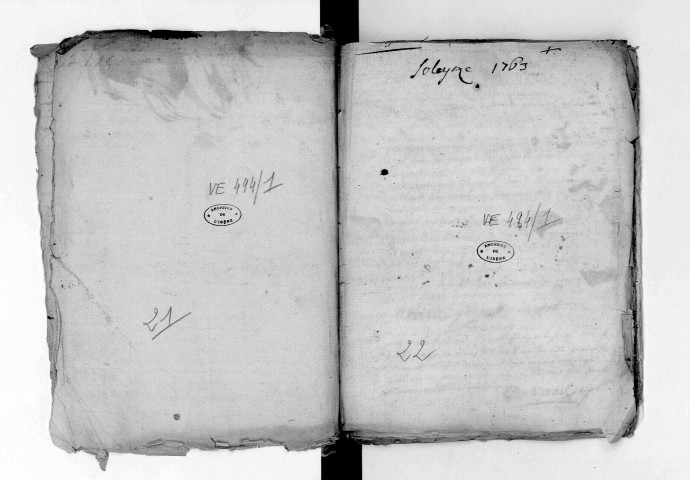 VE 494/1
ARCHIVES
DE
L'ISÈRE
21
Soleyze 1763
VE 494/1
ARCHIVES
DE
L'ISÈRE
22